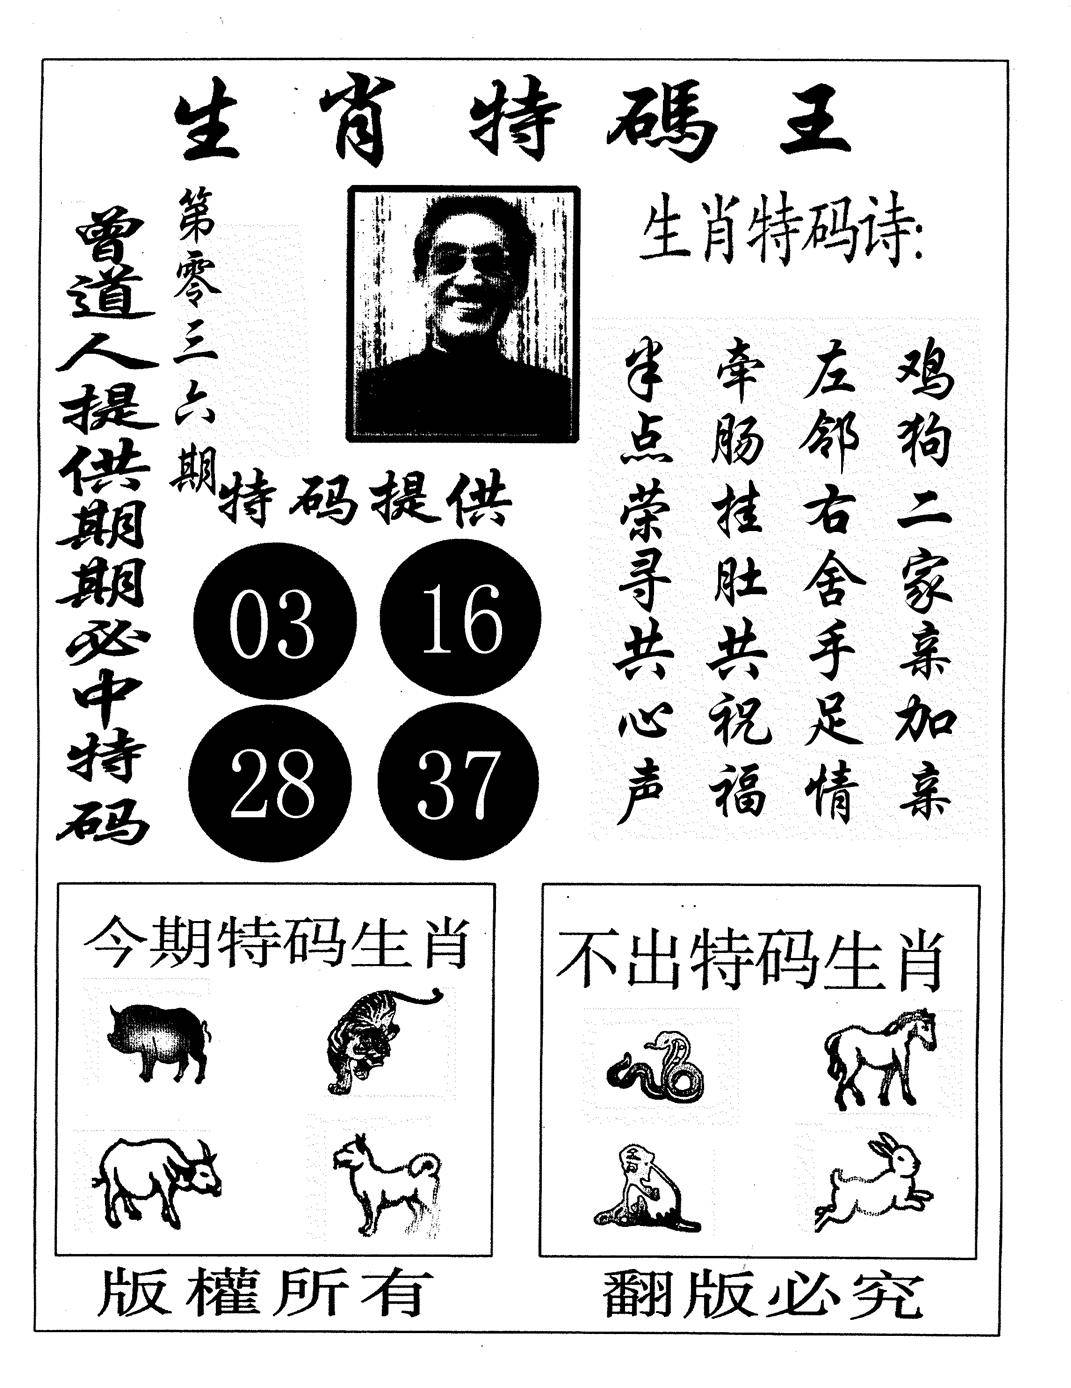 生肖特碼王
曾道人提供期期必中特码
第零三六期
生肖特码诗:
鸡狗二家亲加亲
左邻右舍手足情
牵肠挂肚共祝福
半点荣寻共心声
特码提供
03 16
28 37
今期特码生肖
不出特码生肖
版權所有
翻版必究